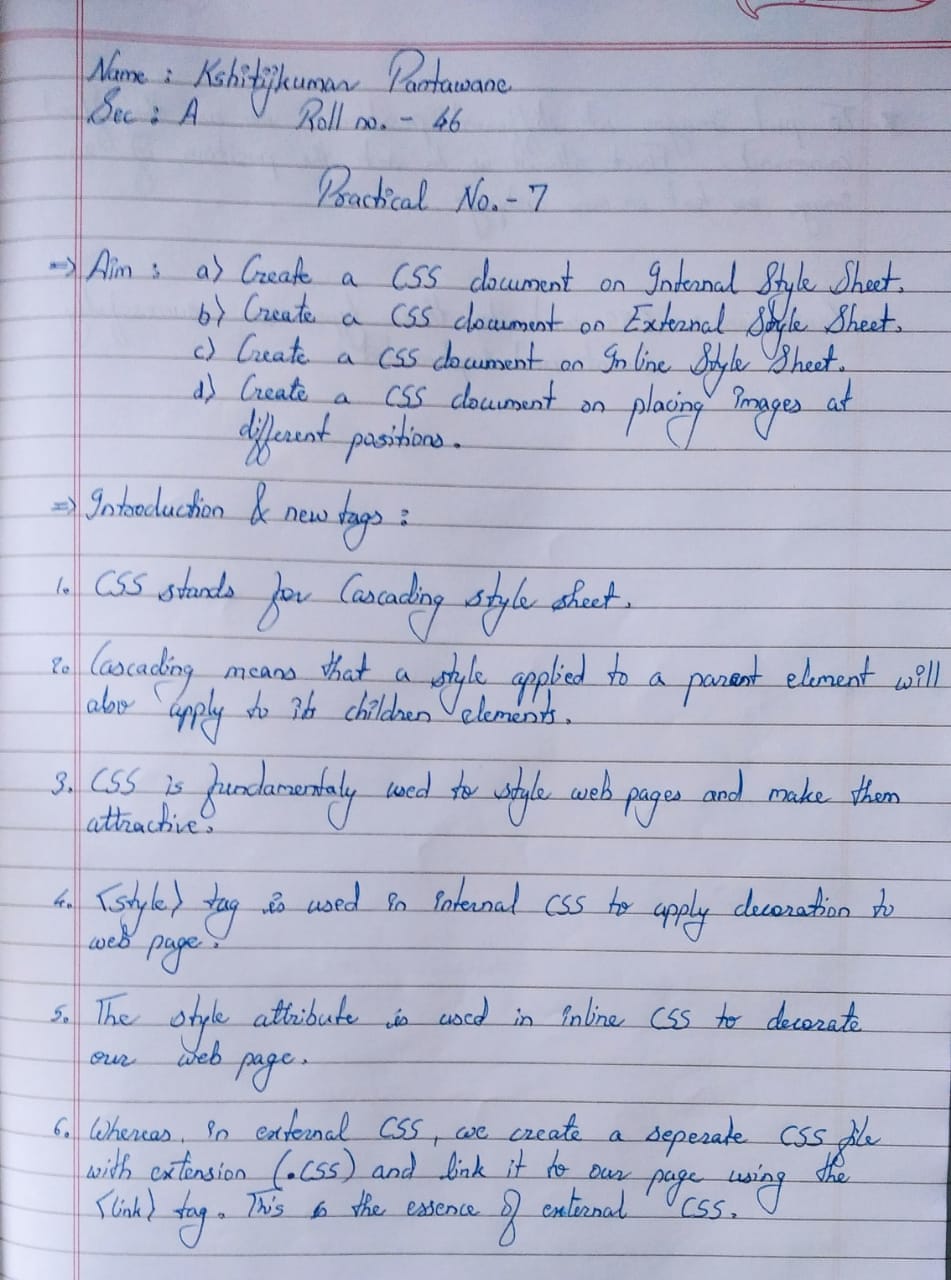 Name : Kshitijkumar Pantawane
Sec : A Roll no. - 46
Practical No. - 7
=> Aim : a) Create a CSS document on Internal Style Sheet.
b) Create a CSS document on External Style Sheet.
c) Create a CSS document on Inline Style Sheet.
d) Create a CSS document on placing images at
different positions.
=> Introduction & new tags :
1. CSS stands for Cascading style sheet.
2. Cascading means that a style applied to a parent element will
also apply to its children elements.
3. CSS is fundamentaly used to style web pages and make them
attractive.
4. <style> tag is used in internal CSS to apply decoration to
web page.
5. The style attribute is used in inline CSS to decorate
our web page.
6. Whereas, in external CSS, we create a seperate CSS file
with extension (.CSS) and link it to our page using the
<link> tag. This is the essence of external CSS.